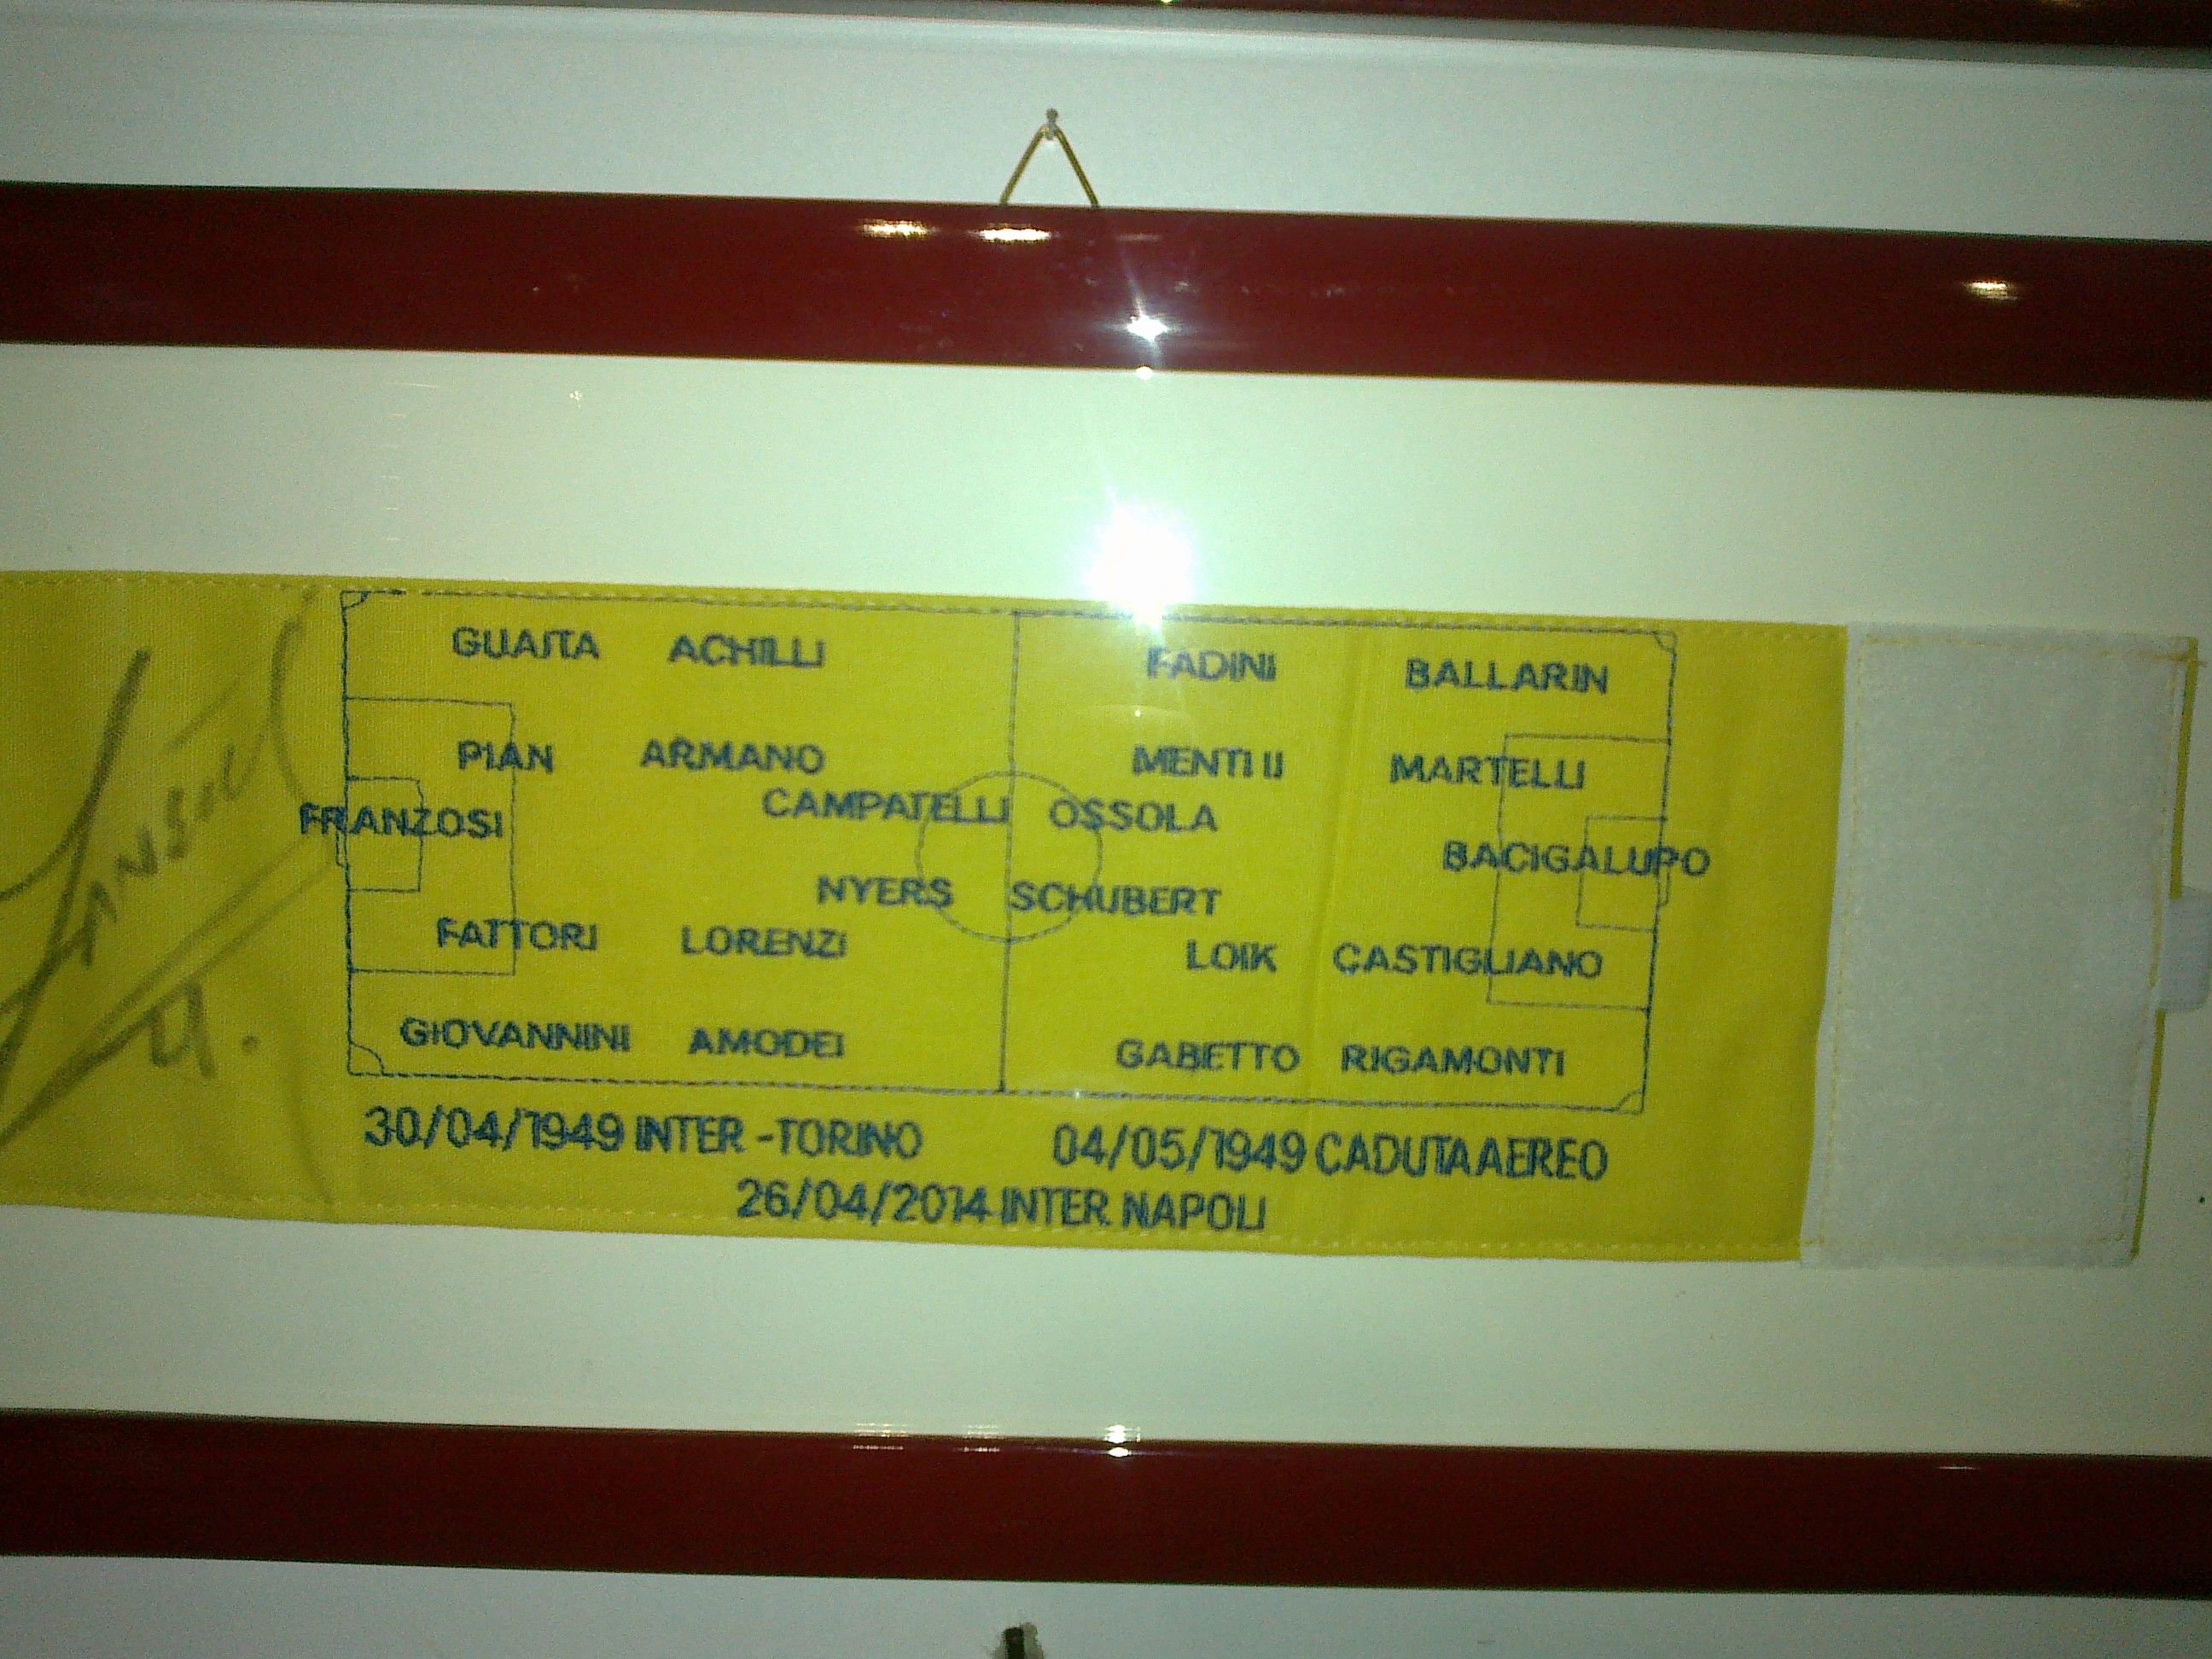 GUAITA ACHILLI FADINI BALLARIN
PIAN ARMANO MENTI II MARTELLI
FRANZOSI CAMPATELLI OSSOLA BACIGALUPO
NYERS SCHUBERT
FATTORI LORENZI LOIK CASTIGLIANO
GIOVANNINI AMODEI GABETTO RIGAMONTI
30/04/1949 INTER - TORINO 04/05/1949 CADUTA AEREO
26/04/2014 INTER NAPOLI